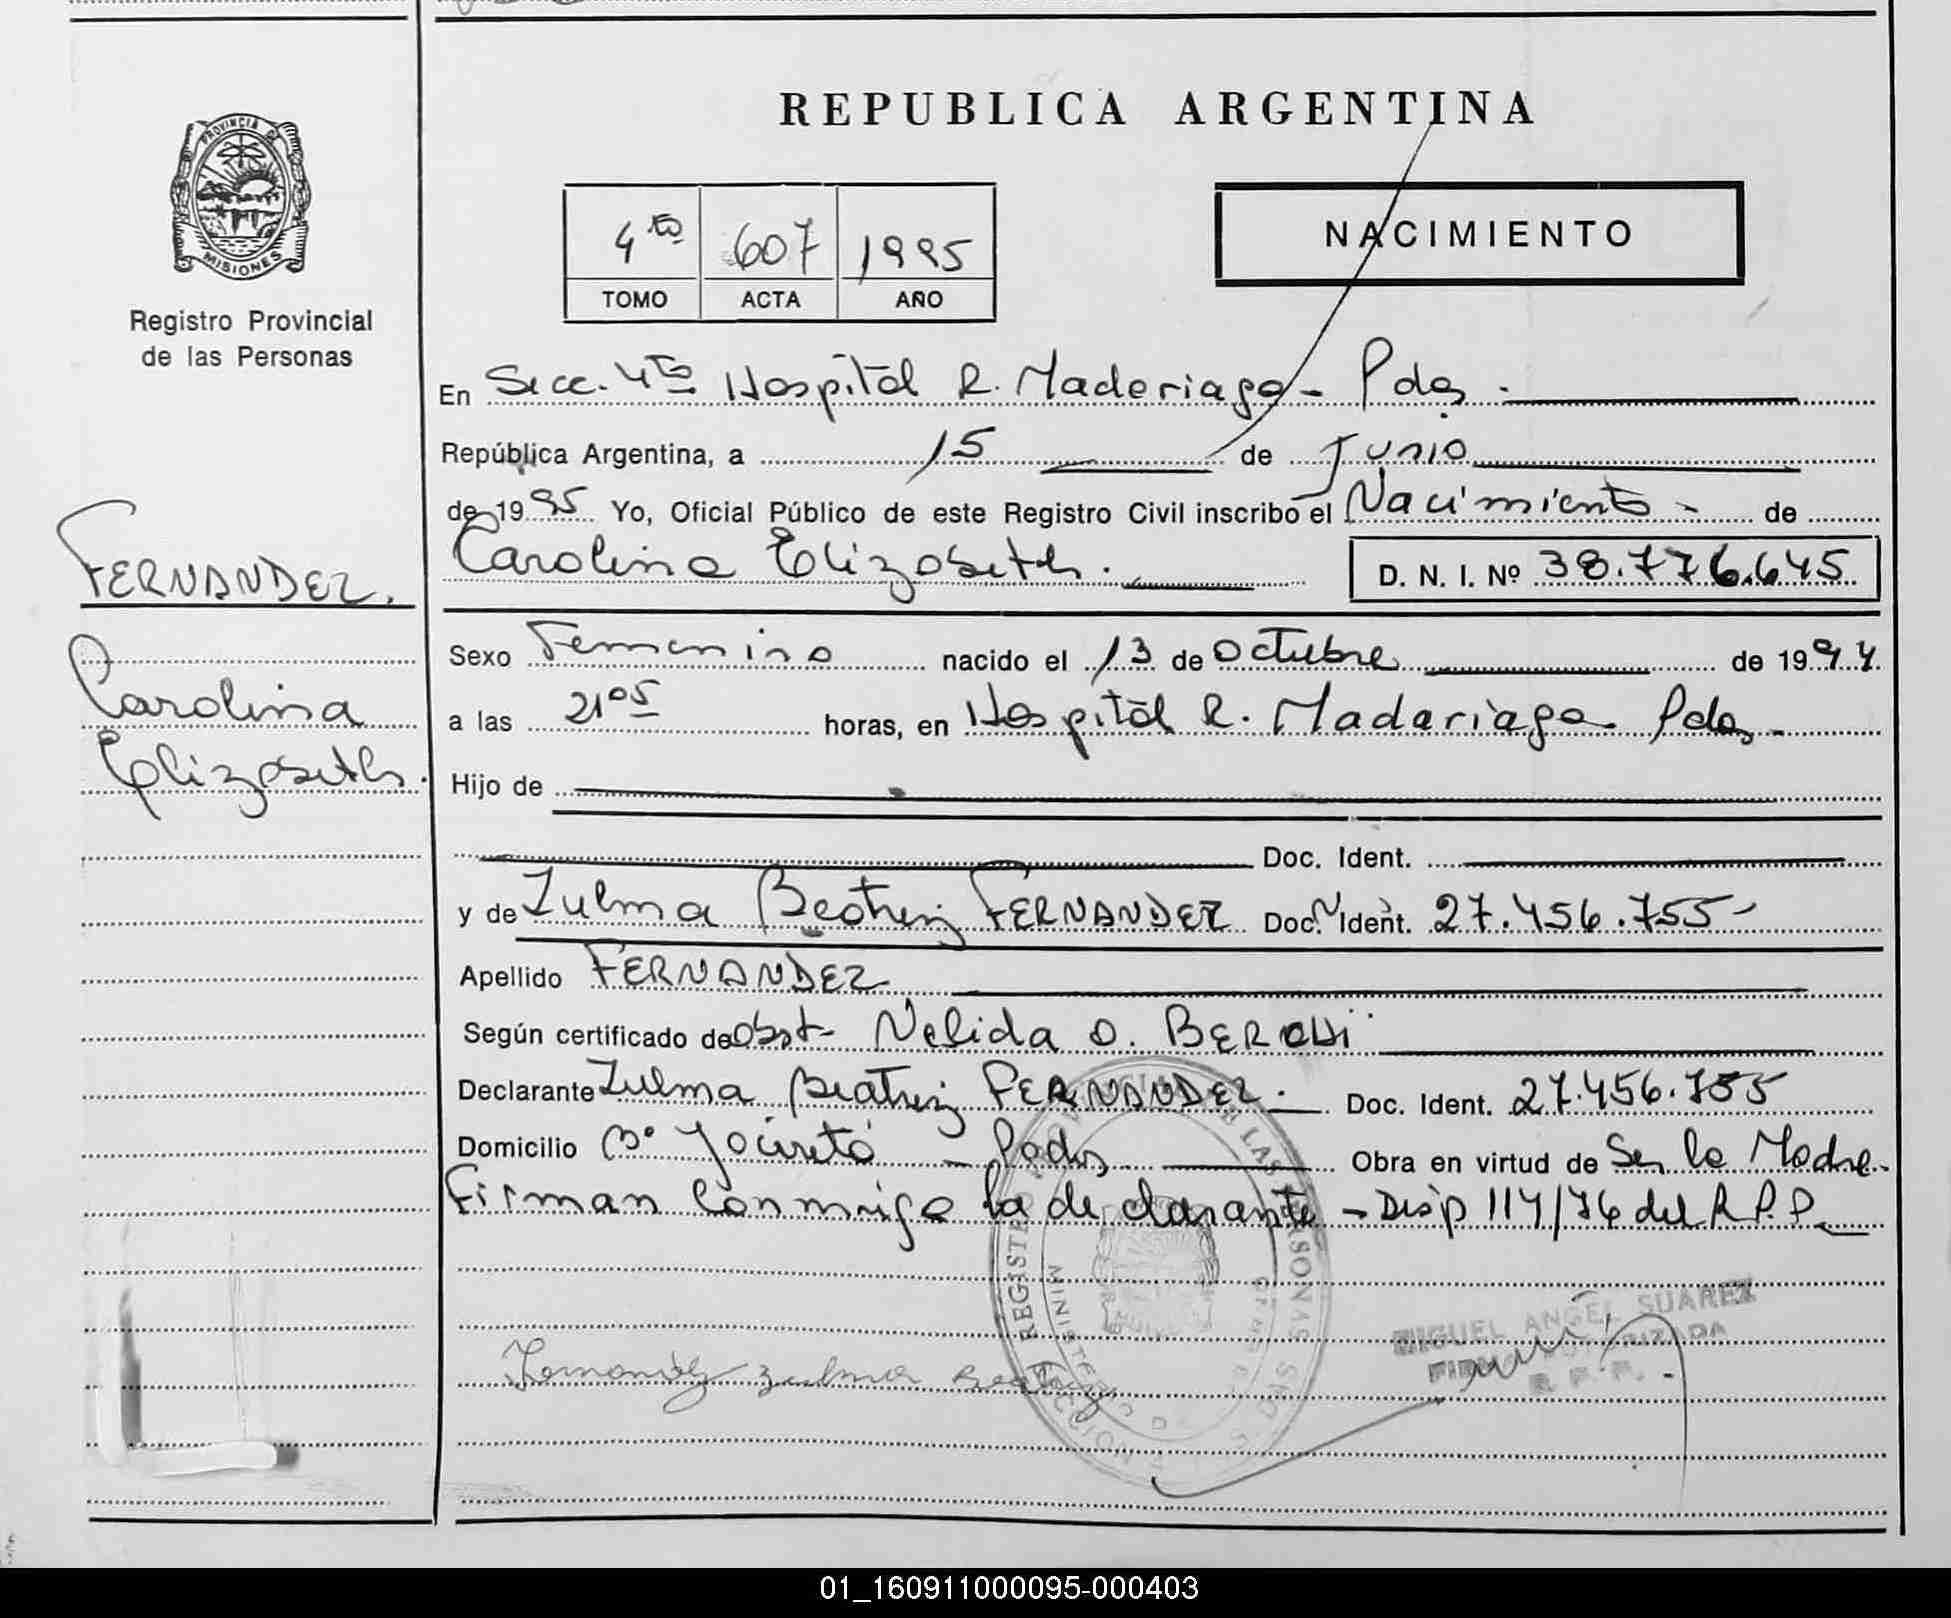 REPUBLICA ARGENTINA
PROVINCIA DE
MISIONES
Registro Provincial
de las Personas
4to 607 1995
TOMO ACTA AÑO
NACIMIENTO
En Secc. 4ta Hospital R. Madariaga - Pdas.
República Argentina, a 15 de Junio
de 1995 Yo, Oficial Público de este Registro Civil inscribo el Nacimiento - de
Carolina Elizabeth. D. N. I. Nº 38.776.645
FERNANDEZ.
Carolina
Elizabeth.
Sexo Femenino nacido el 13 de Octubre de 1994.
a las 21 05 horas, en Hospital R. Madariaga - Pdas.
Hijo de
Doc. Ident.
y de Zulma Beatriz FERNANDEZ Doc. Ident. 27.456.755-
Apellido FERNANDEZ
Según certificado de Obst. Nelida O.
Declarante Zulma Beatriz FERNANDEZ. Doc. Ident. 27.456.755
Domicilio Bº Yacireta - Pdas Obra en virtud de Ser la Madre.
Firman Conmigo la declarante - Disp 114/76 del R.P.P.
REGISTRO PROVINCIAL DE LAS PERSONAS
MIGUEL ANGEL SUAREZ
FIRMA AUTORIZADA
R. P. P.
Fernandez Zulma Beatriz
01_160911000095-000403